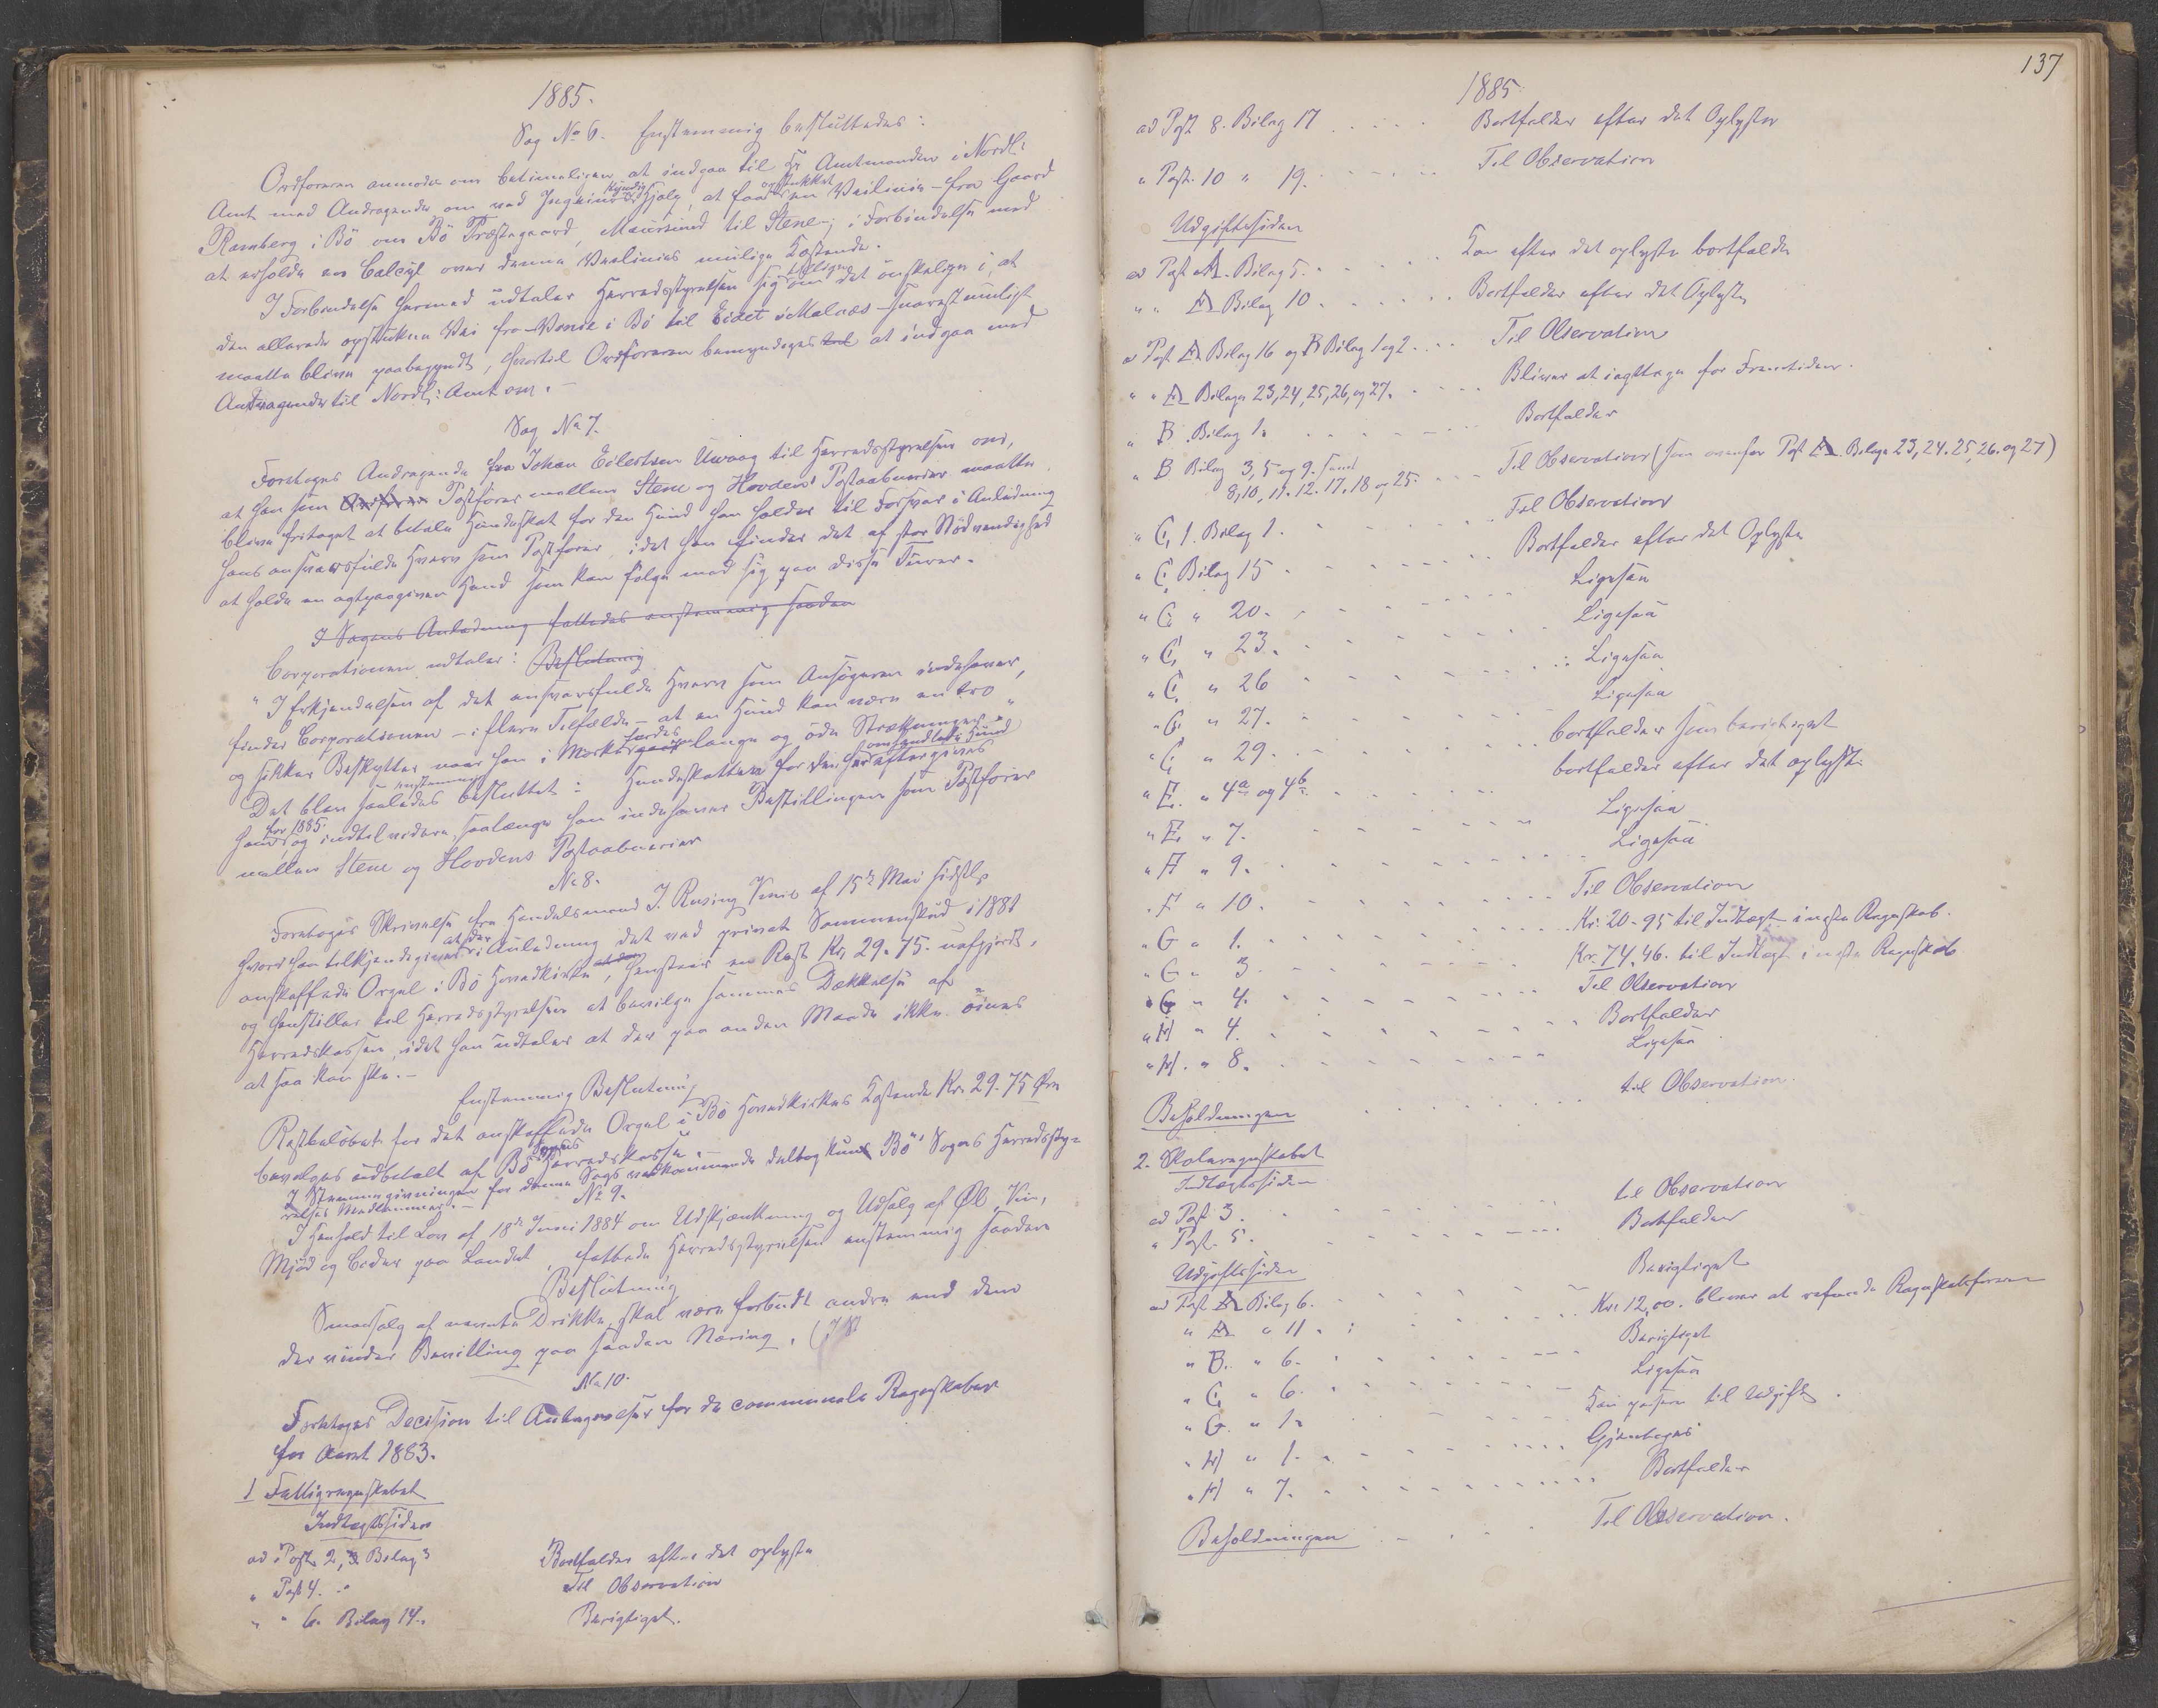 1885.
Sag No 6. Enstemmig besluttedes:
Ordføreren anmodes om betimeligen at indgaa til Hr Amtmanden i Nordl:
Amt med Andragende om ved Ingeniør kyndig Hjælp, at faa opstukket en Veilinie - fra Gaard
Ramberg i Bö om Bö Præstegaard, Maursund til Stene -; i Forbindelse med
at erholde en Calcyl over denne Veilinies mulige Kostende.
I Forbindelse hermed udtaler Herredsstyrelsen sig om det ønskelige i, at
den allerede opstukne Vei fra Vinie i Bö til Eidet i Malnæs snarest muligt
maatte blive paabegyndt, hvortil Ordføreren bemyndiges at indgaa med
Andragender til Nordl: Amt om. -
Sag No 7.
Foretoges Andragende fra Johan Edlertsen Uvaag til Herredsstyrelsen om,
at han som Postfører mellem Stene og Hovdens Postaabnerier maatte
blive fritaget at betale Hundeskat for den Hund han holder til Forsvar i Anledning
hans ansvarsfulde Hverv som Postfører, idet han finder det af stor Nödvendighed
at holde en agtpaagiven Hund som kan følge med sig paa disse Turer.
I Sagens Anledning fattedes enstemmig saadan
Corporationen udtaler: Beslutning
" I Erkjendelsen af det ansvarsfulde Hverv som Ansøgeren indehaver,
finder Corporationen - i flere Tilfælde - at en Hund kan være en tro
og sikker Beskytter naar han i Mørke færdes lange og øde Strækninger "
Det blev saaledes enstemmig besluttet: Hundeskatten for den heromhandlede Hund eftergives
ham for 1885. og indtil videre, saalænge han indehaver Bestillingen som Postfører
mellem Stene og Hovdens Postaabnerier
No 8.
Foretoges Skrivelse fra Handelsmand J. Rusing Vinie af 15de Mai sidstl:
hvori han tilkjendegiver at der i Anledning det ved privat Sammenskud i 1881
anskaffede Orgel i Bö Hovedkirke, henstaar en Rest Kr. 29.75. uafgjort,
og henstiller til Herredsstyrelsen at bevilge sammes Dækkelse af
Herredskassen, idet han udtaler at der paa anden Maade ikke öines
at saa kan ske. -
Enstemmig Beslutning
Restbeløbet for det anskaffede Orgel i Bö Hovedkirkes Kostende Kr. 29.75 Øre
bevilges udbetalt af Bö Sogns Herredskasse. -
I Stemmegivningen for denne Sags vedkommende deltog kuns Bö Sogns Herredssty-
relses Medlemmer. -
No 9.
I Henhold til Lov af 18de Juni 1884 om Udskjænkning og Udsalg af Øl Vin,
Mjød og Ceder paa Landet, fattede Herredsstyrelsen enstemmig saadan
Beslutning
Smaasalg af nævnte Drikke, skal være forbudt andre end dem
der vinder Bevilling paa saadan Næring.
No 10.
Foretoges Decision til Antegnelser for de communale Regnskaber
for Aaret 1883.
1 Fattigregnskabet
Indtægtssiden
ad Post. 2, 3. Bilag 3 Bortfalder efter det oplyste
" Post 4. " Til Observation
" " 6. Bilag 14. Berigtiget.
137
1885
ad Post 8. Bilag 17 Bortfalder efter det Oplyste
" Post. 10 " 19. Til Observation
Udgiftssiden
ad Post A. Bilag 5. Kan efter det oplyste bortfalde
" " A Bilag 10. Bortfalder efter det Oplyste
ad Post A Bilag 16 og B Bilag 1 og 2. Til Observation
" " A Bilage 23, 24, 25, 26, og 27. Bliver at iagttage for Fremtiden.
" B. Bilag 1. Bortfalder
" B Bilag 3, 5 og 9. samt
8, 10, 11. 12. 17. 18 og 25. Til Observation (som ovenfor Post A Bilage 23, 24. 25, 26. og 27)
" C, 1. Bilag 1. Til Observation
" C, Bilag 15 Bortfalder efter det Oplyste
" C, " 20. Ligesaa
" C, " 23. Ligesaa
" C, " 26 Ligesaa
" C, " 27. Ligesaa
" C, " 29. bortfalder som berigtiget
" E. " 4a og 4b. bortfalder efter det oplyste
" E, " 7. Ligesaa
" F " 9. Ligesaa
" F " 10. Til Observation
" G " 1. Kr. 20-95 til Indtægt i neste Regnskab.
" G " 3. Kr. 74.46. til Indtægt i neste Regnskab
" G " 4. Til Observation
" H " 4. Bortfalder
" H. " 8. Ligesaa
Besoldningen til Observation.
2. Skoleregnskabet
Indtægtssiden
ad Post 3. til Observation
" Post. 5. Bortfalder
Udgiftssiden
ad Post A Bilag 6. Berigtiget
" A " 11. Kr. 12,00. bliver at refundere Regnskabsføreren
" B. " 6. Berigtiget
" C, " 6. Ligesaa
" G. " 1. Kan passere til Udgift.
" H " 1. Gjentages
" H " 7. Bortfalder
Besoldningen Til Observation.